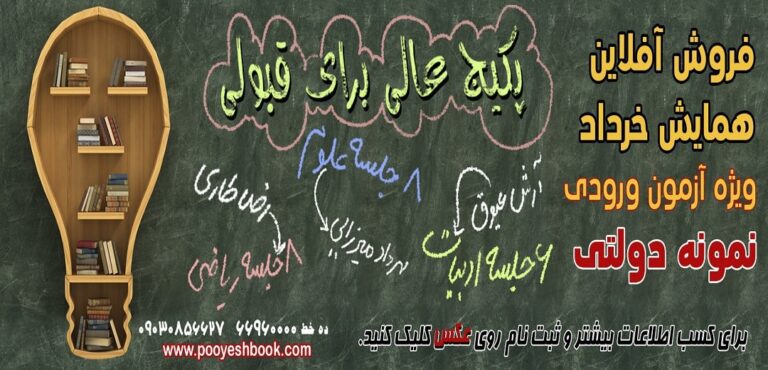 فروش آفلاین
همایش خرداد
ویژه آزمون ورودی
نمونه دولتی
پکیج عالی برای قبولی
آرش عیوق
۶ جلسه ادبیات
۸ جلسه علوم
مهرداد میرزایی
رضا طاری
۸ جلسه ریاضی
برای کسب اطلاعات بیشتر و ثبت نام روی عکس کلیک کنید.
ده خط ۶۶۹۶۰۰۰۰ ۰۹۰۳۰۸۵۶۶۲۷
www.pooyeshbook.com